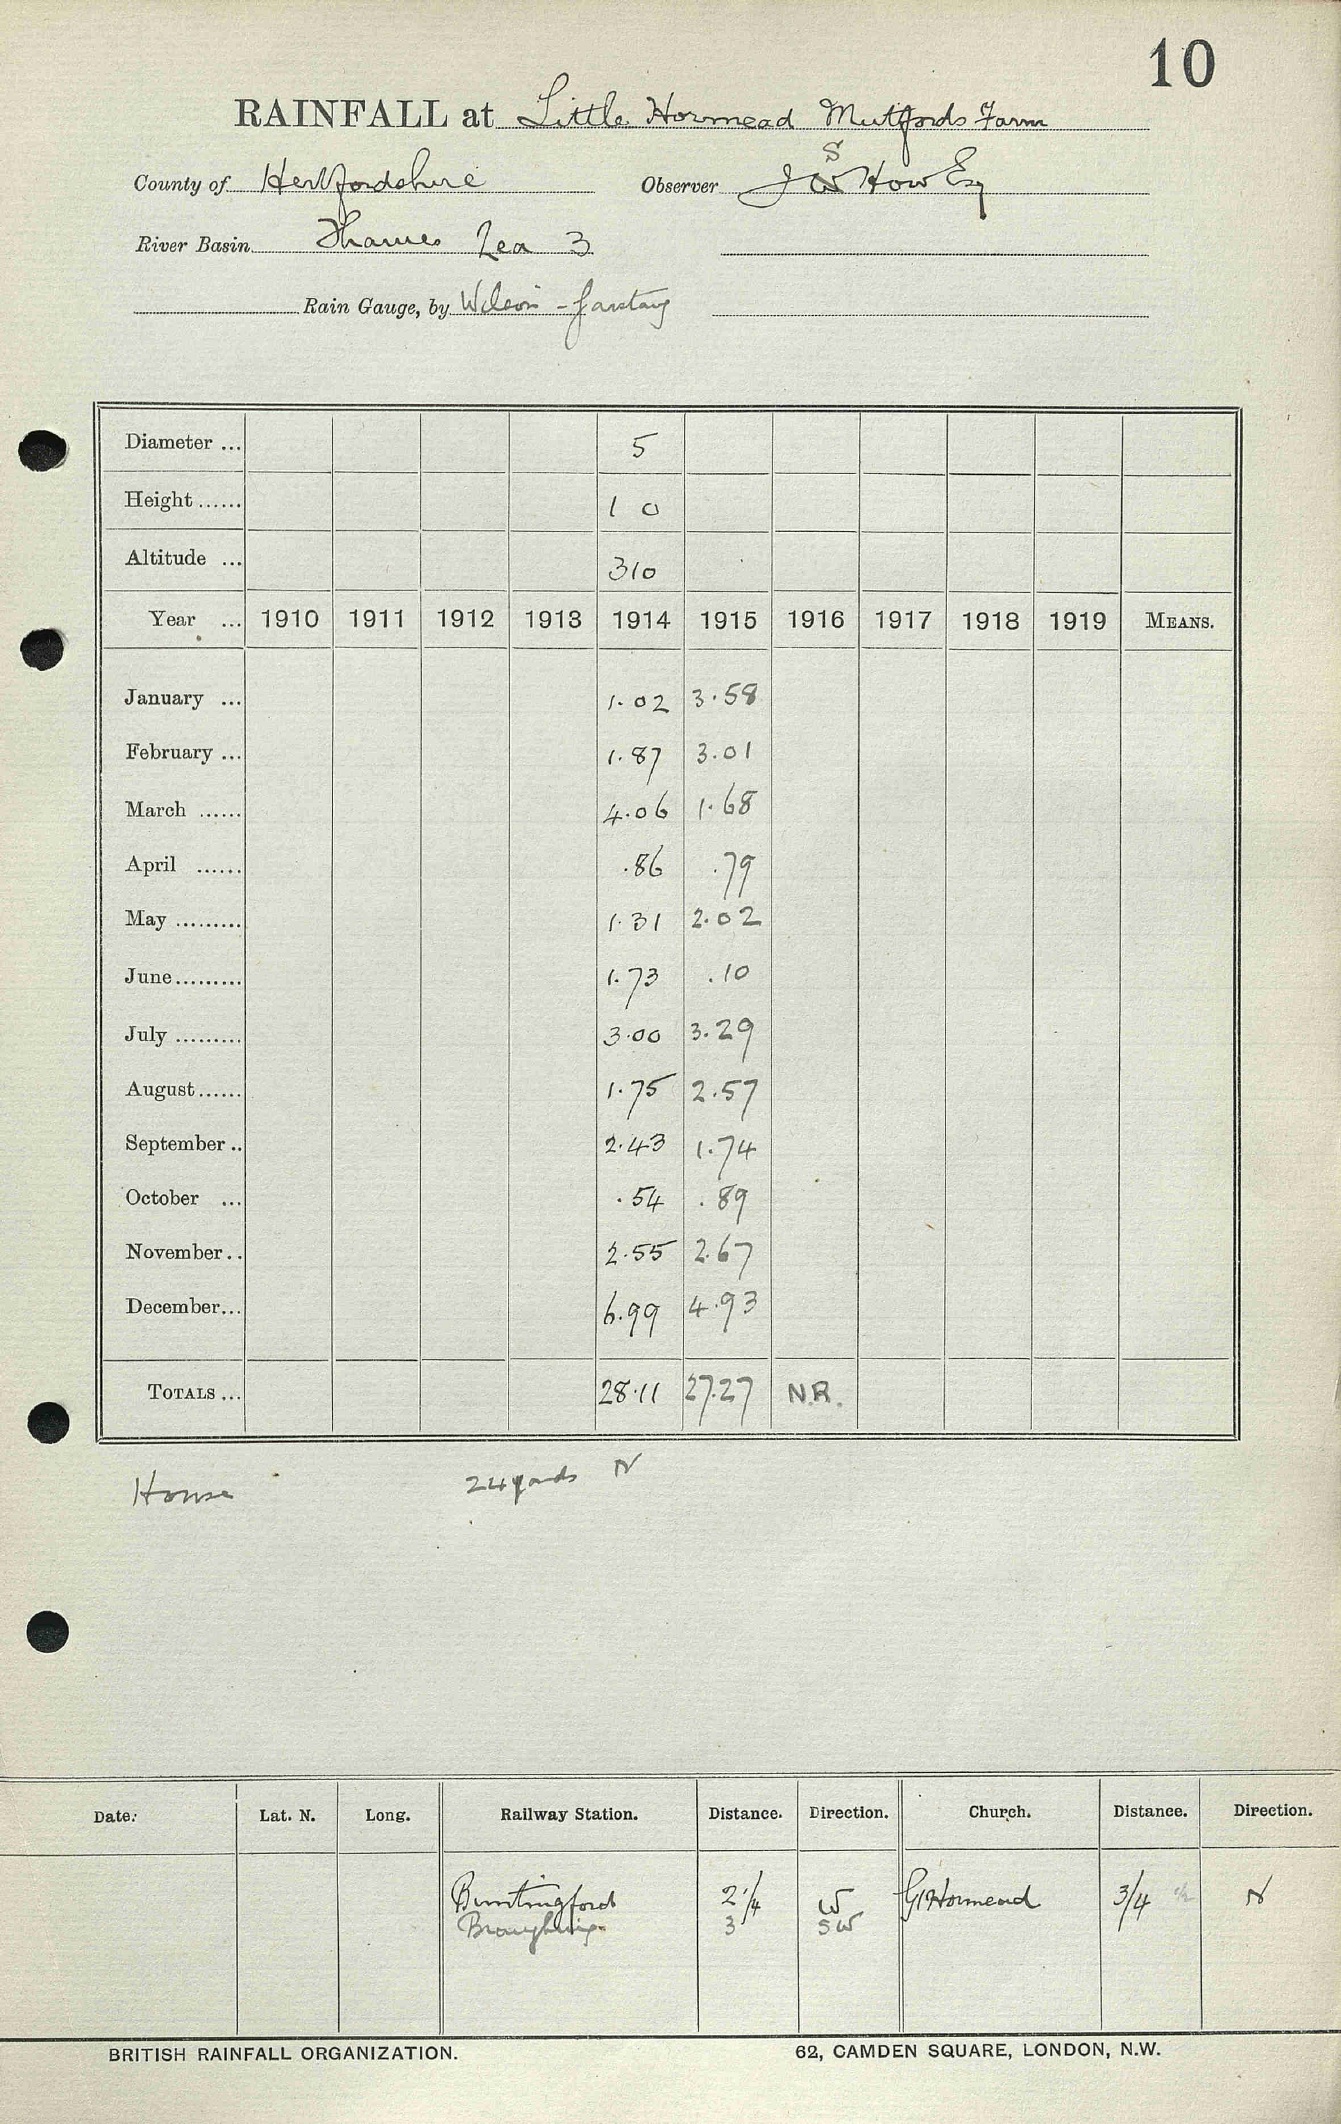 10
RAINFALL at Little Hormead Mutfords Farm
County of Hertfordshire Observer J S W How Esq
River Basin Thames Lea 3
Rain Gauge, by Wilson -
Diameter ... 5
Height ...... 1 0
Altitude ... 310
Year ... 1910 1911 1912 1913 1914 1915 1916 1917 1918 1919 MEANS.
January ... 1.02 3.58
February ... 1.87 3.01
March ...... 4.06 1.68
April ...... .86 .79
May ......... 1.31 2.02
June ......... 1.73 .10
July ......... 3.00 3.29
August ...... 1.75 2.57
September .. 2.43 1.74
October ... .54 .89
November .. 2.55 2.67
December ... 6.99 4.93
TOTALS ... 28.11 27.27 N.R.
House 24 yards N
Date. Lat. N. Long. Railway Station. Distance. Direction. Church. Distance. Direction.
Buntingford 2 1/4 W Gt Hormead 3/4 N
Braughing 3 SW
BRITISH RAINFALL ORGANIZATION. 62, CAMDEN SQUARE, LONDON, N.W.